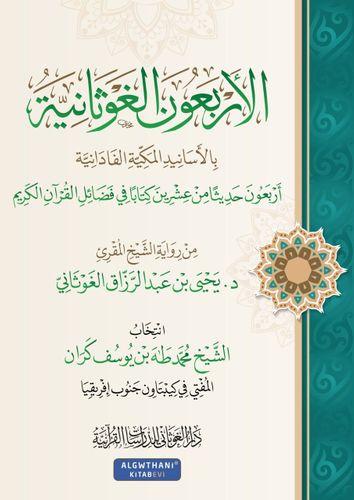 الأَرْبَعُونَ الغَوْثَانِيَّةُ
بِالأَسَانِيدِ المَكِّيَّةِ الفَادَانِيَّةِ
أَرْبَعُونَ حَدِيثًا مِنْ عِشْرِينَ كِتَابًا فِي فَضَائِلِ القُرْآنِ الكَرِيمِ
مِنْ رِوَايَةِ الشَّيْخِ المُقْرِئِ
د. يَحْيَى بْنِ عَبْدِ الرَّزَّاقِ الغَوْثَانِيِّ
انْتِخَابُ
الشَّيْخِ مُحَمَّد طَهَ بْنِ يُوسُف كَرَان
المُفْتِي فِي كِيبْتَاوِن جَنُوبِ إِفْرِيقِيَا
دار الغوثاني للدراسات القرآنية
ALGWTHANI®
KITABEVI